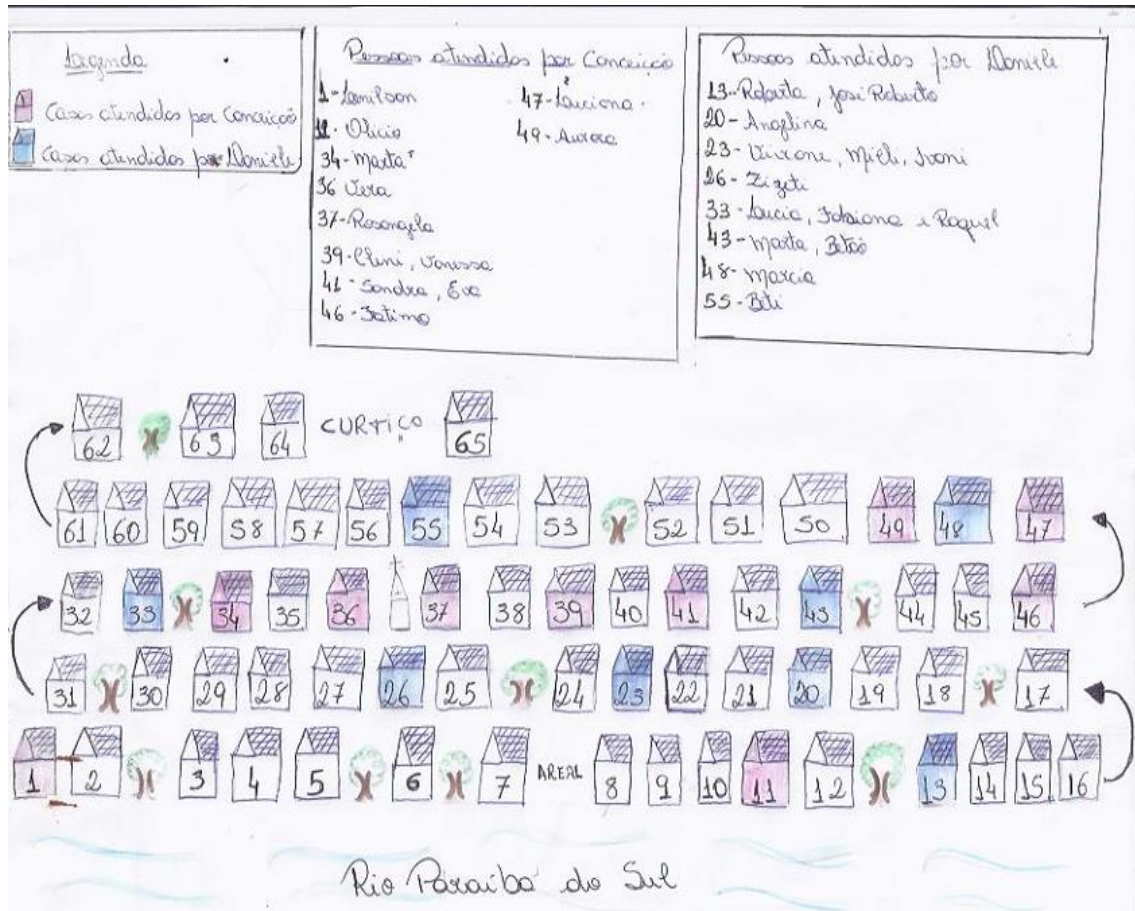 Legenda
Casas atendidas por Conceição
Casas atendidas por Daniele
Pessoas atendidas por Conceição
1-Lenilson
11-Olicio
34-Marta
36 Vera
37-Rosangela
39-Cleni, Vanessa
41-Sandra, Eva
46-Fatima
47-Luciana
49-Aurora
Pessoas atendidas por Daniele
13-Roberta, José Roberto
20-Angelina
23- Mieli, Ivoni
26-Zizeti
33-Lucia, Fabiana e Raquel
43-Marta, Betão
48-Marcia
55-Beti
62 63 64 CURTIÇO 65
61 60 59 58 57 56 55 54 53 52 51 50 49 48 47
32 33 34 35 36 37 38 39 40 41 42 43 44 45 46
31 30 29 28 27 26 25 24 23 22 21 20 19 18 17
1 2 3 4 5 6 7 AREAL 8 9 10 11 12 13 14 15 16
Rio Paraíba do Sul